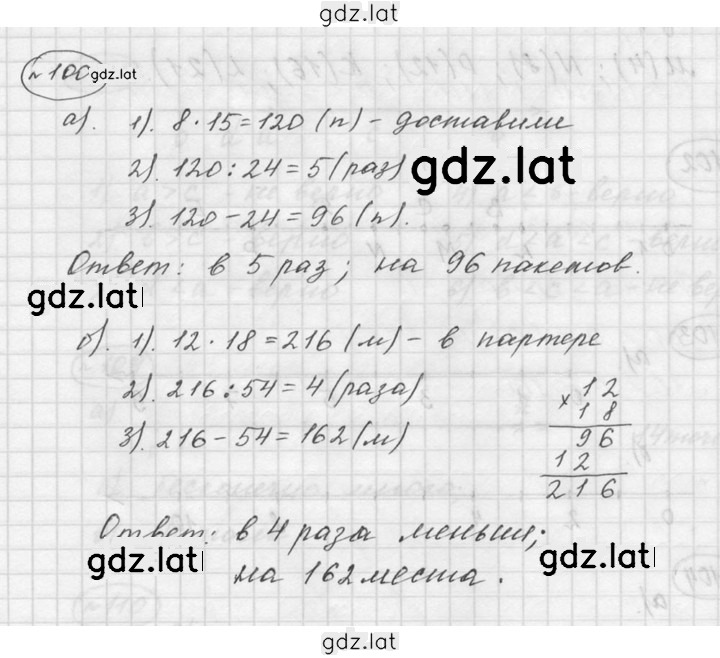 gdz.lat
№100 gdz.lat
а). 1). 8·15=120 (п) - доставили
2). 120:24=5 (раз)
gdz.lat
3). 120-24=96 (п).
Ответ: в 5 раз; на 96 пакетов.
gdz.lat
б). 1). 12·18=216 (м) - в партере
2). 216:54=4 (раза)
3). 216-54=162 (м)
× 12
18
96
12
216
Ответ: в 4 раза меньш;
gdz.lat
gdz.lat
на 162 места.
gdz.lat